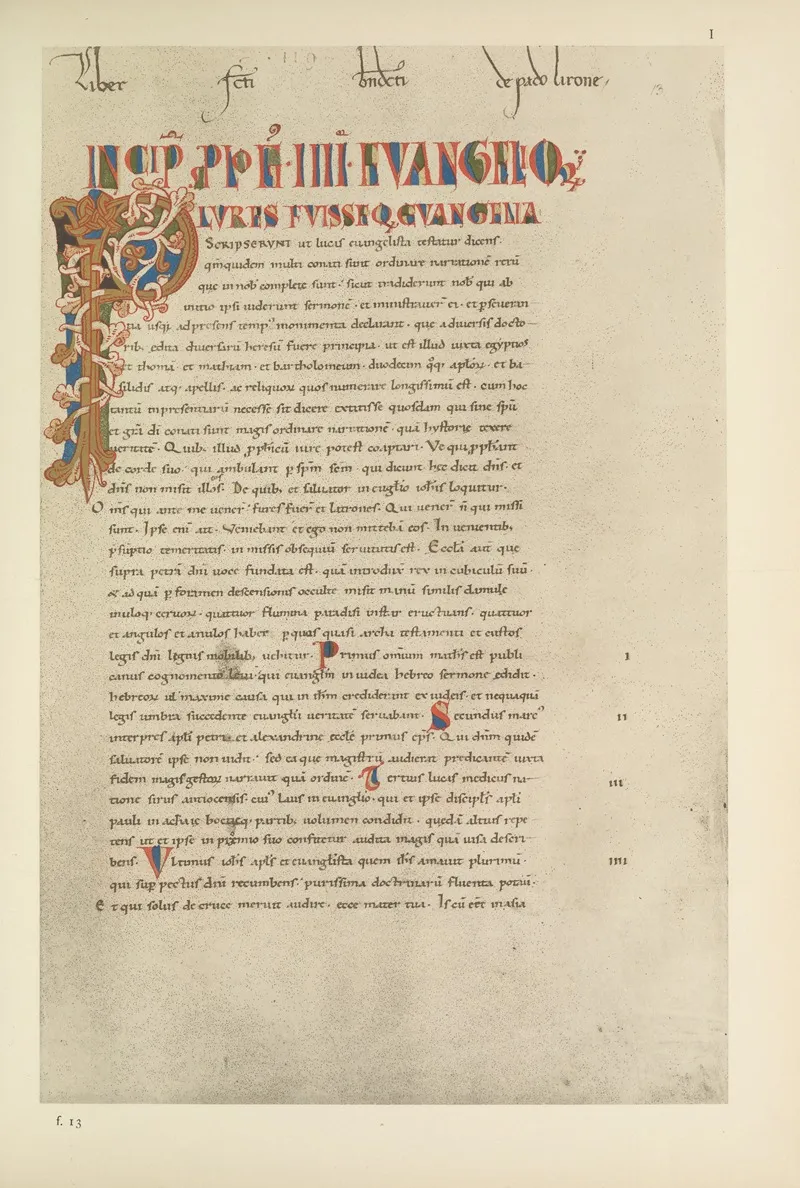 I
Liber sc̄ti bn̄dcti de pado lirone,
INCIP̄ P̄P̄H̄·IIII·EVANGELIOꝜ
PLVRES FVISSE Q, EVANGELIA
SCRIPSERVNT ut lucas euangelista testatur dicens·
qm̄ quidem multi conati sunt ordinare narrationē rerū
que in nob̄ complete sunt· sicut tradiderunt nob̄ qui ab
initio ipsi uiderunt sermonē· et ministrauer̄ ei· et p̱seueran
tia usq; ad presens temp᾽ monimenta declarant· que a diuersis docto
rib; edita diuersarū heresū fuere principia· ut est illud iuxta egyptios
et thomā· et mathiam· et bartholomeum· duodecim q̊q; aplōꝝ· et ba
silidis atq; apellis· ac reliquoꝝ quos numerare longissimū est· cum hoc
tantū in presentiarū necesse sit dicere extitisse quosdam qui sine sp̄ū
et gr̄a dī conati sunt magis ordinare narrationē· quā hystorie texere
ueritatē· Quib; illud ꝓph̄icū iure potest coaptari· Ve qui ꝓph̄ant
de corde suo· qui ambulant p̱ sp̄m sūm· qui dicunt hec dicit dn̄s· et
dn̄s non misit illos· De quib; et saluator in euglio ioh̄is loquitur·
Om̄s qui ante me uener̄ fures fuer̄ et latrones· Qui uener̄ n̄ qui missi
sunt· Ipse eni ait· Veniebant et ego non mittebā eos· In uenientib;
p̱sūptio temeritatis· in missis obsequiū seruitutis est· Eccliā aut̄ que
supra petrā dn̄i uoce fundata est· quā introdux̄ rex in cubiculū suū·
& ad quā p̱ foramen descensionis occulte misit manū similis damule
inuloq; ceruoꝝ· quattuor flumina paradisi instar eructans· quattuor
et angulos et anulos habet p̱ quas quasi archa testamenti et custos
legis dn̄i lignis mobilib; uehitur· Primus omium mathēs est publi
canus cognomento leui· qui euanglm̄ in iudea hebreo sermone edidit·
hebreoꝝ ul̄ maxime causa qui in ih̄m crediderant ex iudeis· et nequaquā
legis umbra succedente euanglii ueritatē seruabant· Secundus marc᾽
interpres apl̄i petri et alexandrine eccl̄e primus ep̄s· Qui dn̄m quidē
saluatorē ipse non uidit· sed ea que magistrū audierat predicantē iuxta
fidem magis gestoꝝ narrauit quā ordinē· Tertius lucas medicus na
tione sirus antiocensis· cui᾽ laus in euanglio· qui et ipse discipl̄s apl̄i
pauli in achaie boetieq; partib; uolumen condidit· quedā altius repe
tens ut et ipse in prohemio suo confitetur audita magis quā uisa descri
bens· Vltimus ioh̄s apl̄s et euanglista quem ih̄s amauit plurimū·
qui sup̱ pectus dn̄i recumbens· purissima doctrinarū fluenta potauit·
Et qui solus de cruce meruit audire· ecce mater tua· Is cū eēt in asia
I
II
III
IIII
f. 13